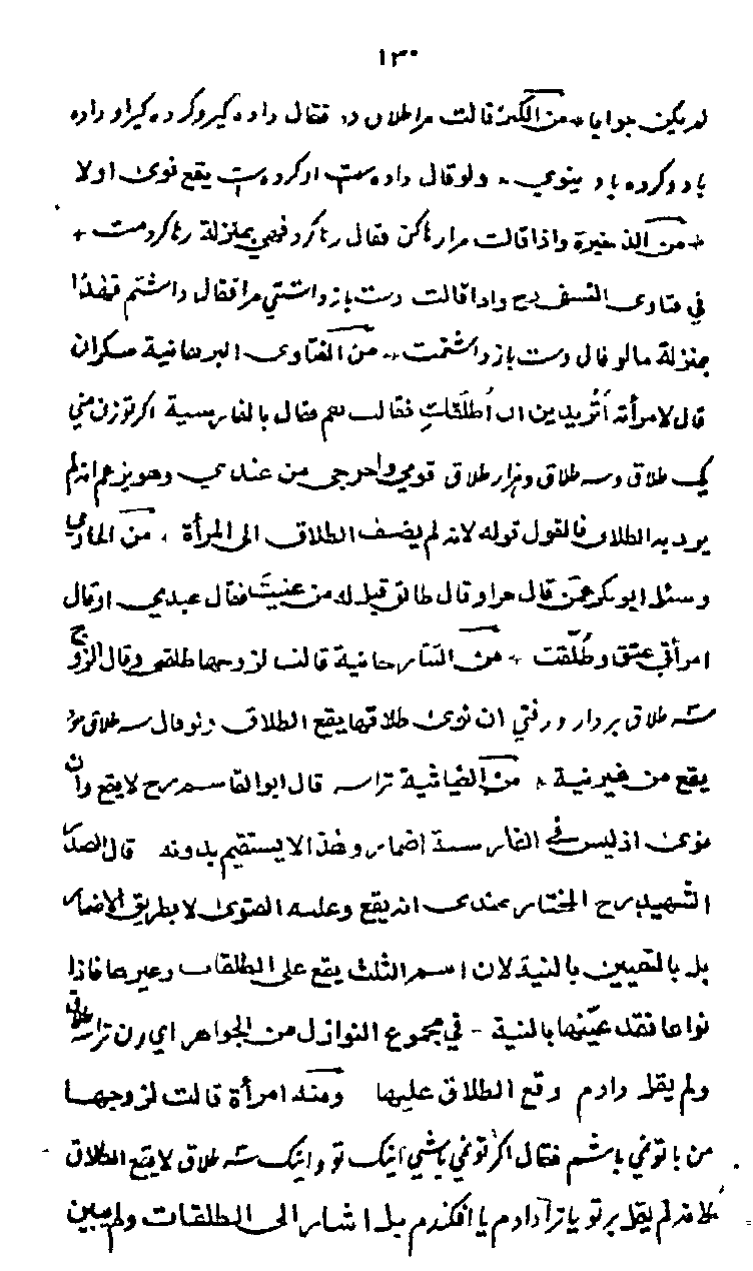 ١٣٠
لم يكن جوابا * من الكبرى قالت مرا طلاق ده فقال داده گير وكرده گير او داده
باد وكرده باد ينوي * ولو قال داده ست او كرده ست يقع نوى او لا
* من الذخيرة واذا قالت مرا رها كن فقال رها كرد فهي بمنزلة رها كردمت *
في فتاوى النسفي رح واذا قالت دست باز داشتي مرا فقال داشتم فهذا
بمنزلة ما لو قال دست باز داشتمت * من الفتاوى البرهانية سكران
قال لامرأته أتريدين ان أطلقك فقالت نعم فقال بالفارسية اگر تو زن مني
يك طلاق وسه طلاق وهزار طلاق قومي واخرجي من عندي وهو يزعم انه لم
يرد به الطلاق فالقول قوله لانه لم يضف الطلاق الى المرأة * من الحاوي
وسئل ابو بكر عمن قال حر او قال طالق قيل له من عنيت فقال عبدي او قال
امرأتي عتق وطلقت * من التتارخانية قالت لزوجها طلقني وقال الزوج
سه طلاق بردار ورفتي ان نوى طلاقها يقع الطلاق ولو قال سه طلاق
يقع من غير نية * من الغياثية تراسه قال ابو القاسم رح لا يقع وان
نوى اذ ليس في الفارسية اضمار وهذا لا يستقيم بدونه قال الصدر
الشهيد رح المختار عندي انه يقع وعليه الفتوى لا بطريق الاضمار
بل بالتعيين بالنية لان اسم الثلث يقع على الطلقات وغيرها فاذا
نواها فقد عينها بالنية - في مجموع النوازل من الجواهر اي زن تراسه طلاق
ولم يقل دادم وقع الطلاق عليها ومنه امرأة قالت لزوجها
من با تو نمي باشم فقال اگر تو نمي باشي اينك تو واينك سه طلاق لا يقع الطلاق
لانه لم يقل بر تو يا ترا دادم يا افكندم بل اشار الى الطلقات ولم يبين